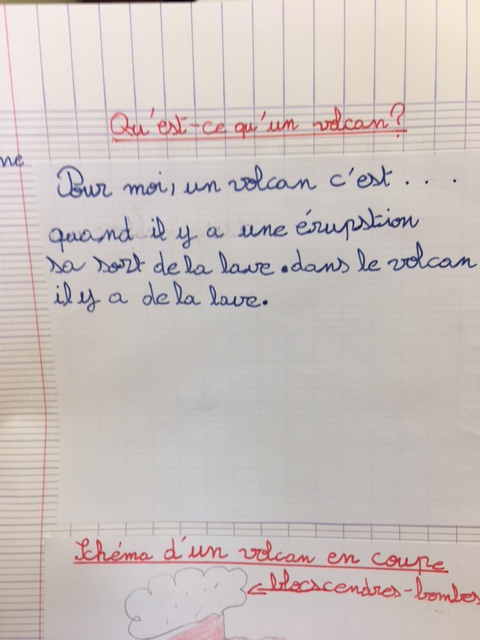 Qu'est-ce qu'un volcan?
ne
Pour moi, un volcan c'est . . .
quand il y a une érupstion
sa sort de la lave. dans le volcan
il y a de la lave.
Schéma d'un volcan en coupe
blocscendres-bombes